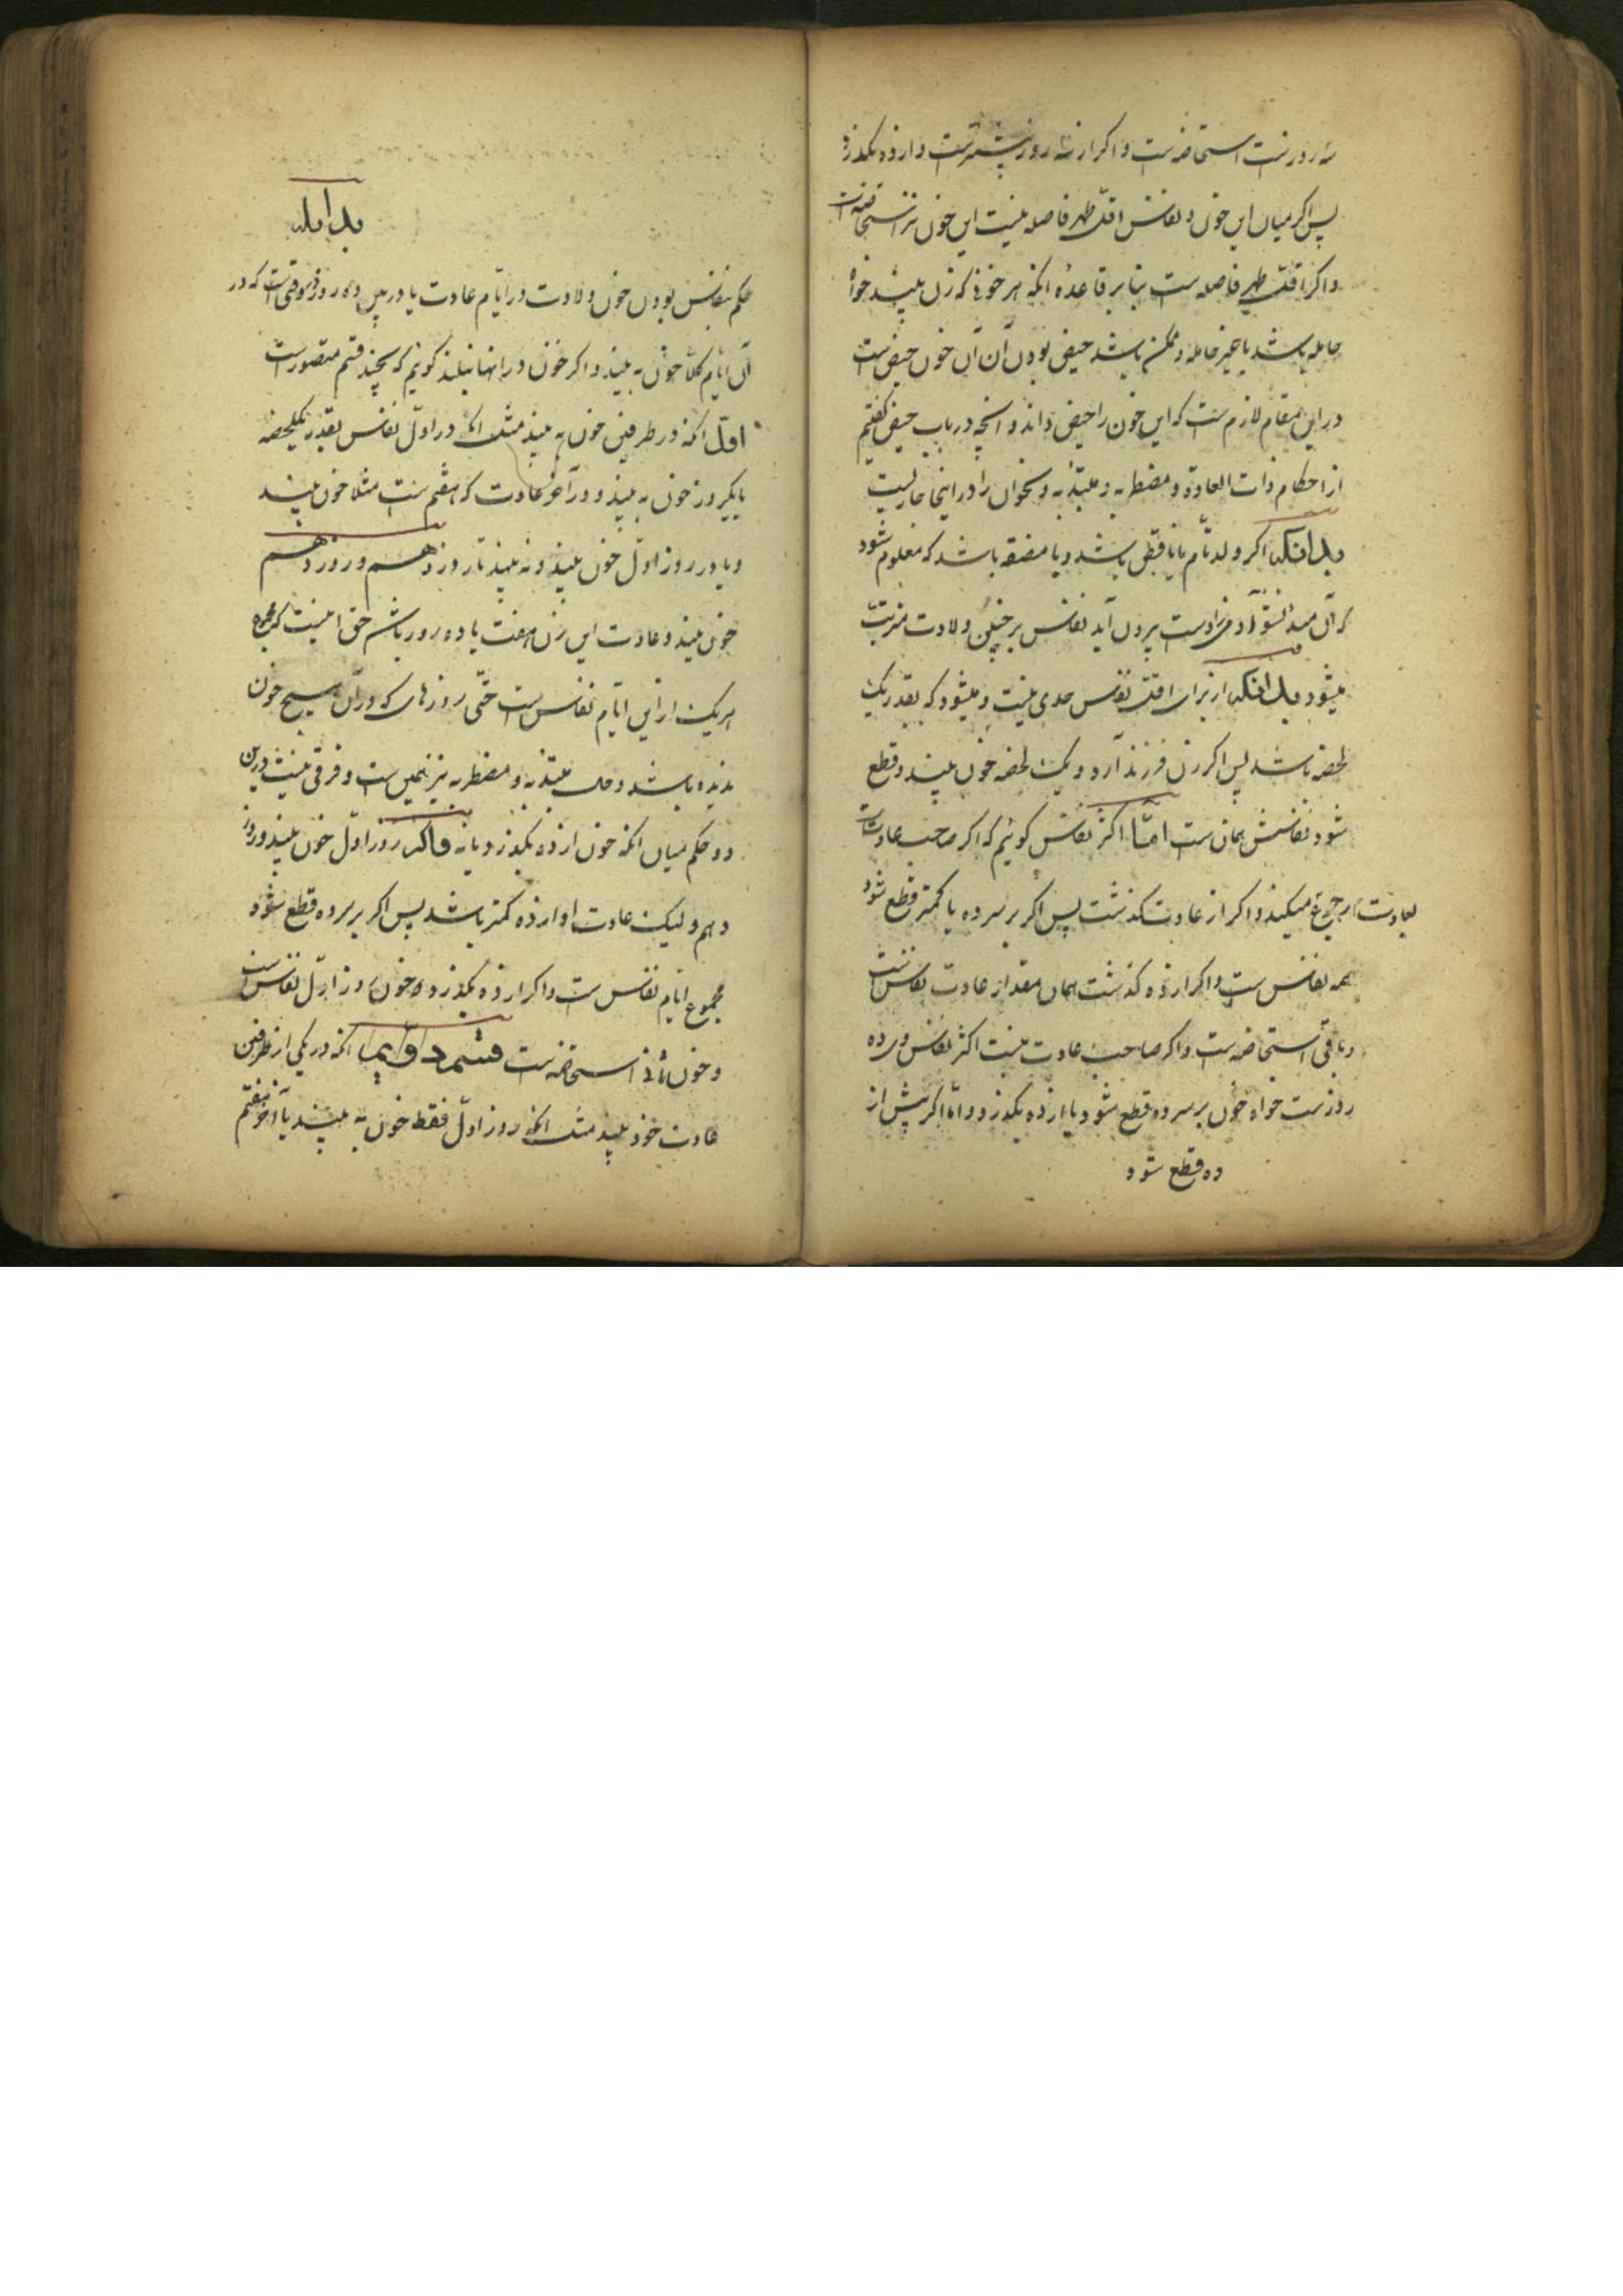 سه روزست استحاضه است و اکر از سه روز بیشترست و از ده نکذرد
پس اکر میان این خون و نفاس اقل طهر فاصله نیست این خون نیز استحاضه است
و اکر اقل طهر فاصله است بنا بر قاعده انکه هر خونی که زن بیند خواه
حامله باشد یا غیر حامله و ممکن باشد حیض بودن آن آن خون حیض است
در این مقام لازم است که این خون را حیض داند و آنچه در باب حیض کفتیم
از احکام ذات العاده و مضطربه و مبتدئه و نحوان را در اینجا جاریست
بدانکه اکر ولد تام یا ناقص باشد و یا مضغه باشد که معلوم شود
که آن مبدا نشو آدمی زادست بیرون آید نفاس بر چنین ولادت مترتب
میشود بدانکه از برای اقل نفاس حدی نیست و میشود که بقدر یک
لحضه باشد پس اکر زن فرزند آرد و یک لحضه خون بیند و قطع
شود نفاسش همان است اما اکثر نفاس کوئیم که اکر صاحب عادتست
بعادت رجوع میکند و اکر از عادت کذشت پس اکر بر سر ده یا کمتر قطع شود
همه نفاس ست و اکر از ده کذشت همان مقدار عادت نفاس است
و باقی استحاضه است و اکر صاحب عادت نیست اکثر نفاس وی ده
روزست خواه خون بر سر ده قطع شود یا از ده بکذرد و اما اکر پیش از
ده قطع شود
بدانکه
حکم نفاس بودن خون ولادت در ایام عادت یا در بین ده روز وقتی است که در
آن ایام کلا خون به بیند و اکر خون در انها نبیند کوئیم که بچند قسم متصورست
اول انکه در طرفین خون به بیند مثل انکه در اول نفاس بقدر یکلحضه
یا یکروز خون به بیند و در آخر عادت که هفتم ست مثلا خون بیند
و یا در روز اول خون بیند و نه بیند تا روز دهم و روز دهم
خون بیند و عادت این زن هفت یا ده روز باشد حق اینست که مجموع
هر یک از این ایام نفاس است حتی روزهای که در آن هیچ خون
ندیده باشد و حال مبتدئه و مضطربه نیز همین ست و فرقی نیست در این
دو حکم میان انکه خون از ده بکذرد یا نه و اکر روز اول خون بیند و روز
دهم و لیک عادت او از ده کمتر باشد پس اکر بر سر ده قطع شود
مجموع ایام نفاس ست و اکر از ده بکذرد خون روز اول نفاس است
و خون ثانی استحاضه است قسم دویم انکه در یکی از طرفین
عادت خون بیند مثل انکه روز اول فقط خون به بیند یا آخر هفتم